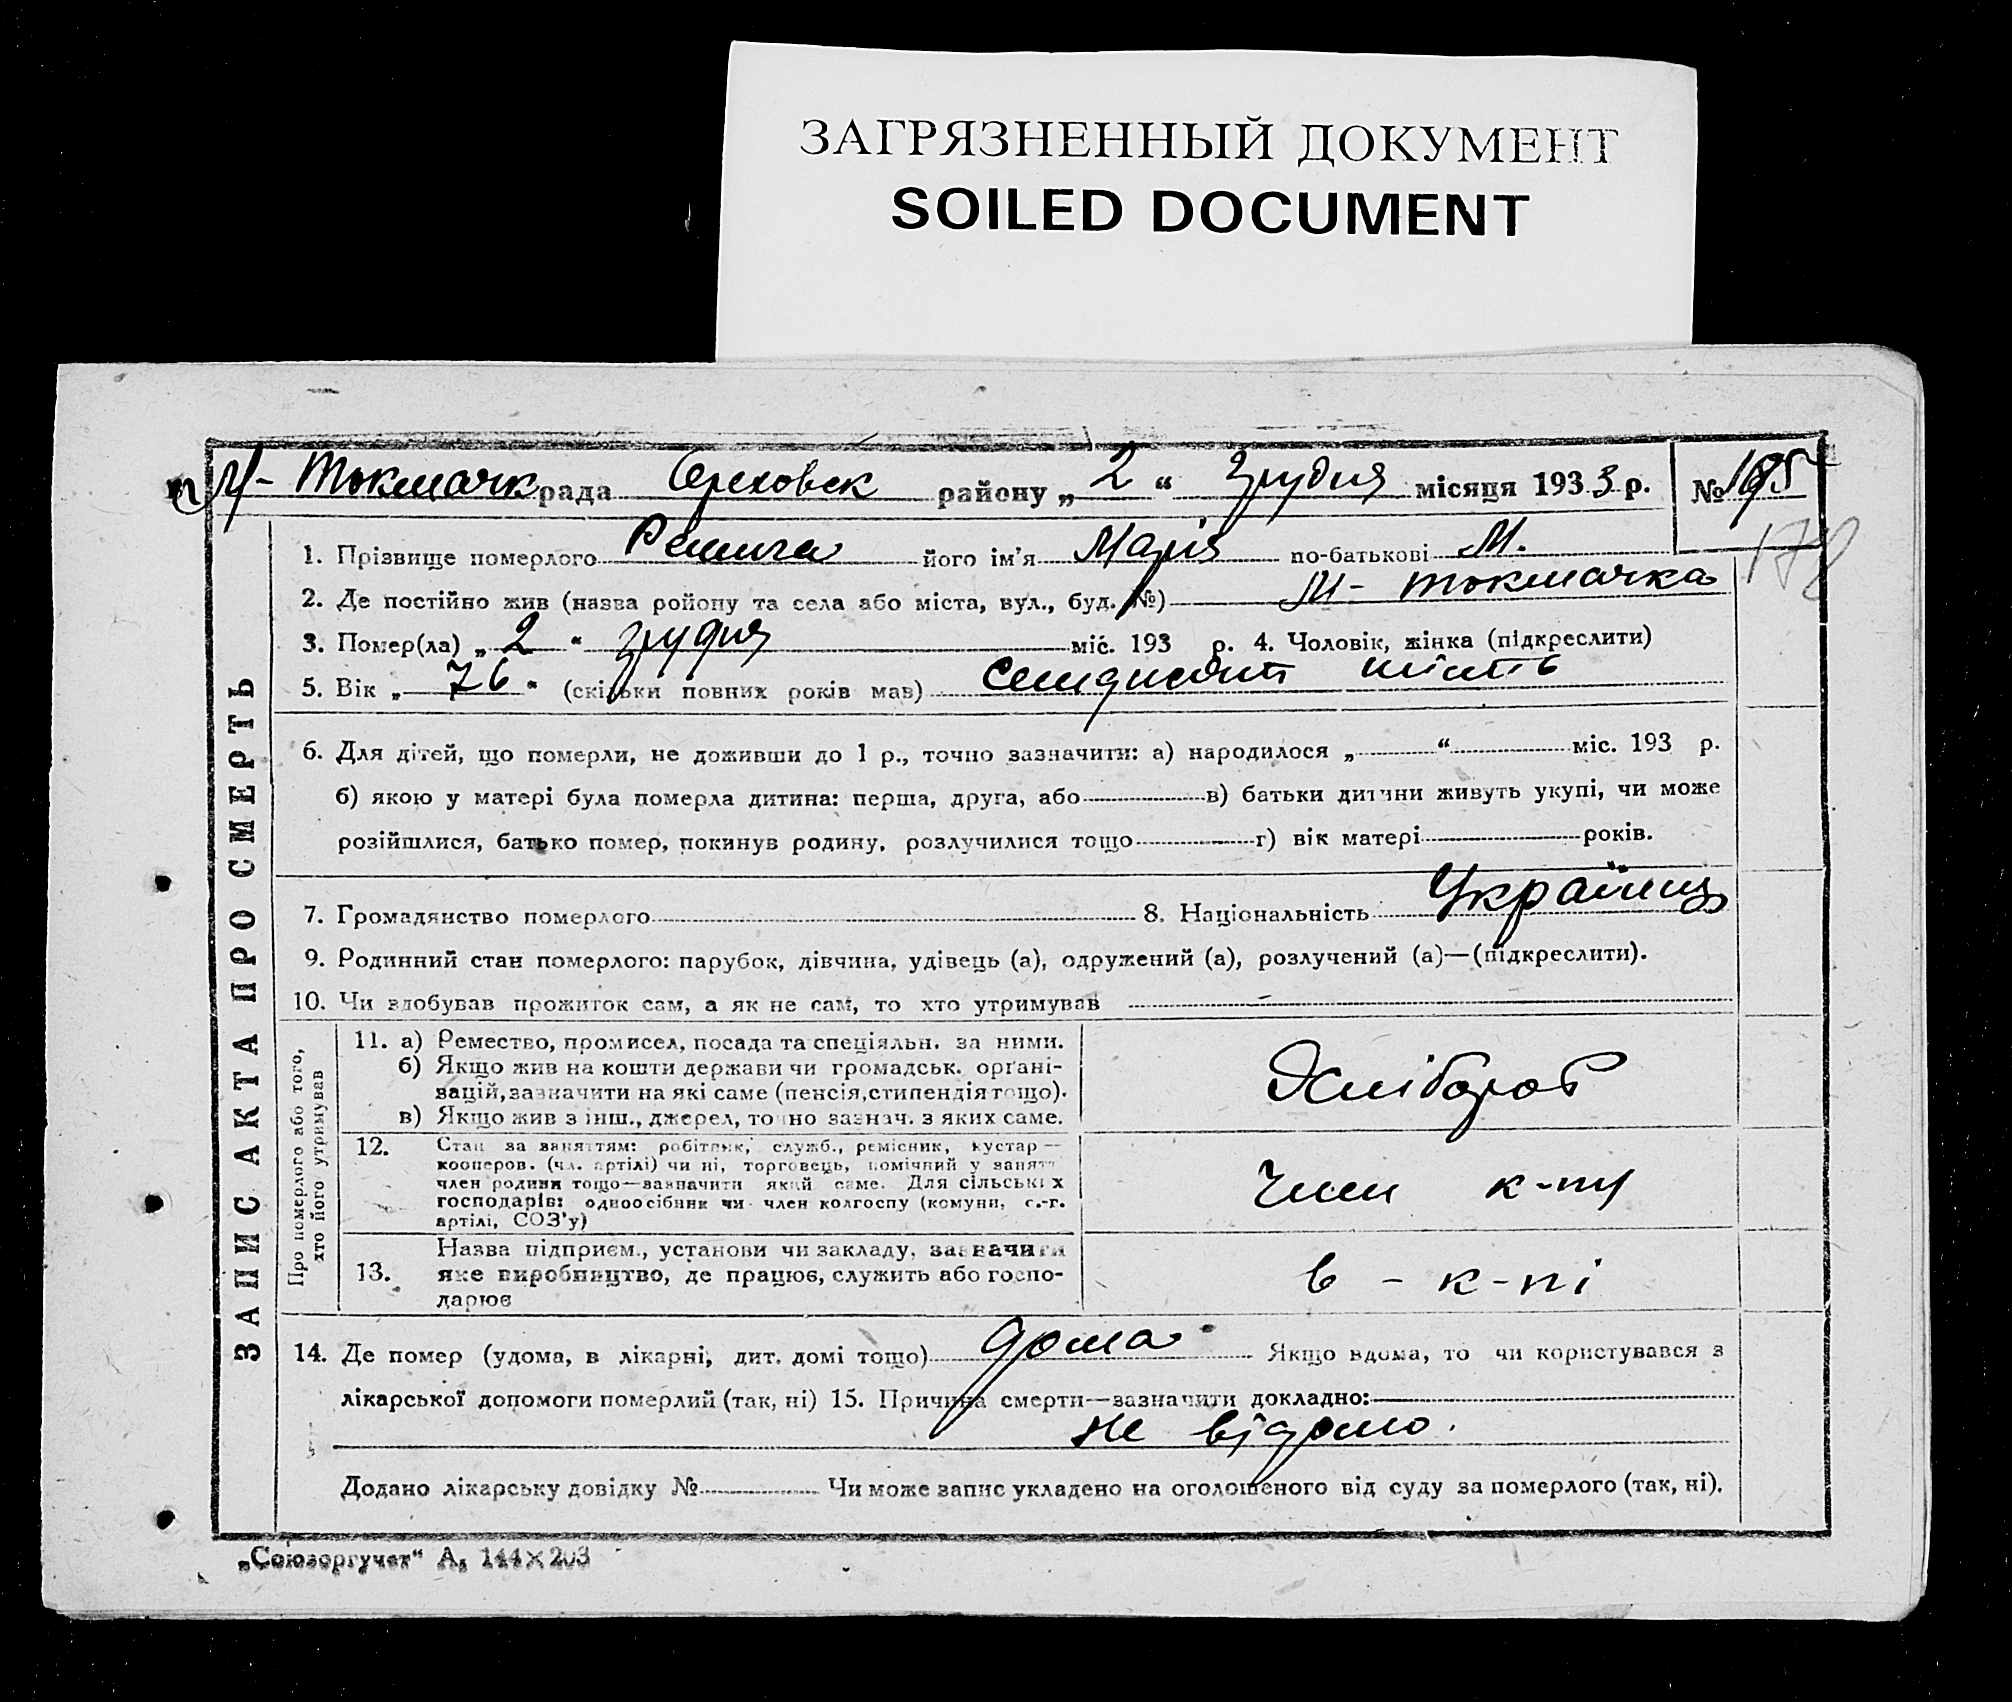 ЗАГРЯЗНЕННЫЙ ДОКУМЕНТ
SOILED DOCUMENT
М- Токмачк рада Ореховск району „ 2 “ грудня місяця 1933 р. № 195
178
1. Прізвище померлого його ім'я Марія по-батькові М.
2. Де постійно жив (назва ройону та села або міста, вул., буд. №) М- Токмачка
3. Помер(ла) „ 2 “ грудня міс. 193 р. 4. Чоловік, жінка (підкреслити)
5. Вік „ 76 “ (скільки повних років мав) семдисят шість
6. Для дітей, що померли, не доживши до 1 р., точно зазначити: а) народилося „ “ міс. 193 р.
б) якою у матері була померла дитина: перша, друга, або в) батьки дитини живуть укупі, чи може
розійшлися, батько помер, покинув родину, розлучилися тощо г) вік матері років.
7. Громадянство померлого 8. Національність Україниц
9. Родинний стан померлого: парубок, дівчина, удівець (а), одружений (а), розлучений (а)—(підкреслити).
10. Чи здобував прожиток сам, а як не сам, то хто утримував
11. а) Ремество, промисел, посада та спеціяльн. за ними.
б) Якщо жив на кошти держави чи громадськ. органі-
зацій, зазначити на які саме (пенсія, стипендія тощо).
в) Якщо жив з інш., джерел, точно зазнач. з яких саме.
Хлібороб
12. Стан за заняттям: робітник, служб., ремісник, кустар —
кооперов. (чл. артілі) чи ні, торговець, помічний у занятт
член родини тощо—зазначити який саме. Для сільських
господарів: одноосібник чи член колгоспу (комуни, с.-г.
артілі, СОЗ'у)
Член к-пу
13. Назва підприєм., установи чи закладу, зазначити
яке виробництво, де працює, служить або госпо-
дарює
в - к-пі
14. Де помер (удома, в лікарні, дит. домі тощо) дома Якщо вдома, то чи користувався з
лікарської допомоги померлий (так, ні) 15. Причина смерти—зазначити докладно:
не відомо.
Додано лікарську довідку № Чи може запис укладено на оголошеного від суду за померлого (так, ні).
ЗАПИС АКТА ПРО СМЕРТЬ
Про померлого або того,
хто його утримував
„Союзоргучет“ А5 144×203